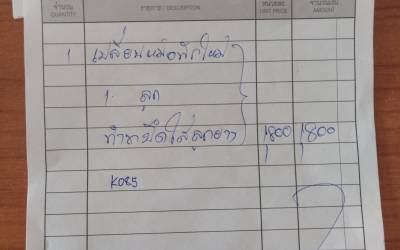 จำนวน QUANTITY รายการ / DESCRIPTION หน่วยละ UNIT PRICE จำนวนเงิน AMOUNT
1 เปลี่ยนหม้อพักใหม่
1. ลูก
ทำขายึดใส่ลูกยาง 1800 1800
K085